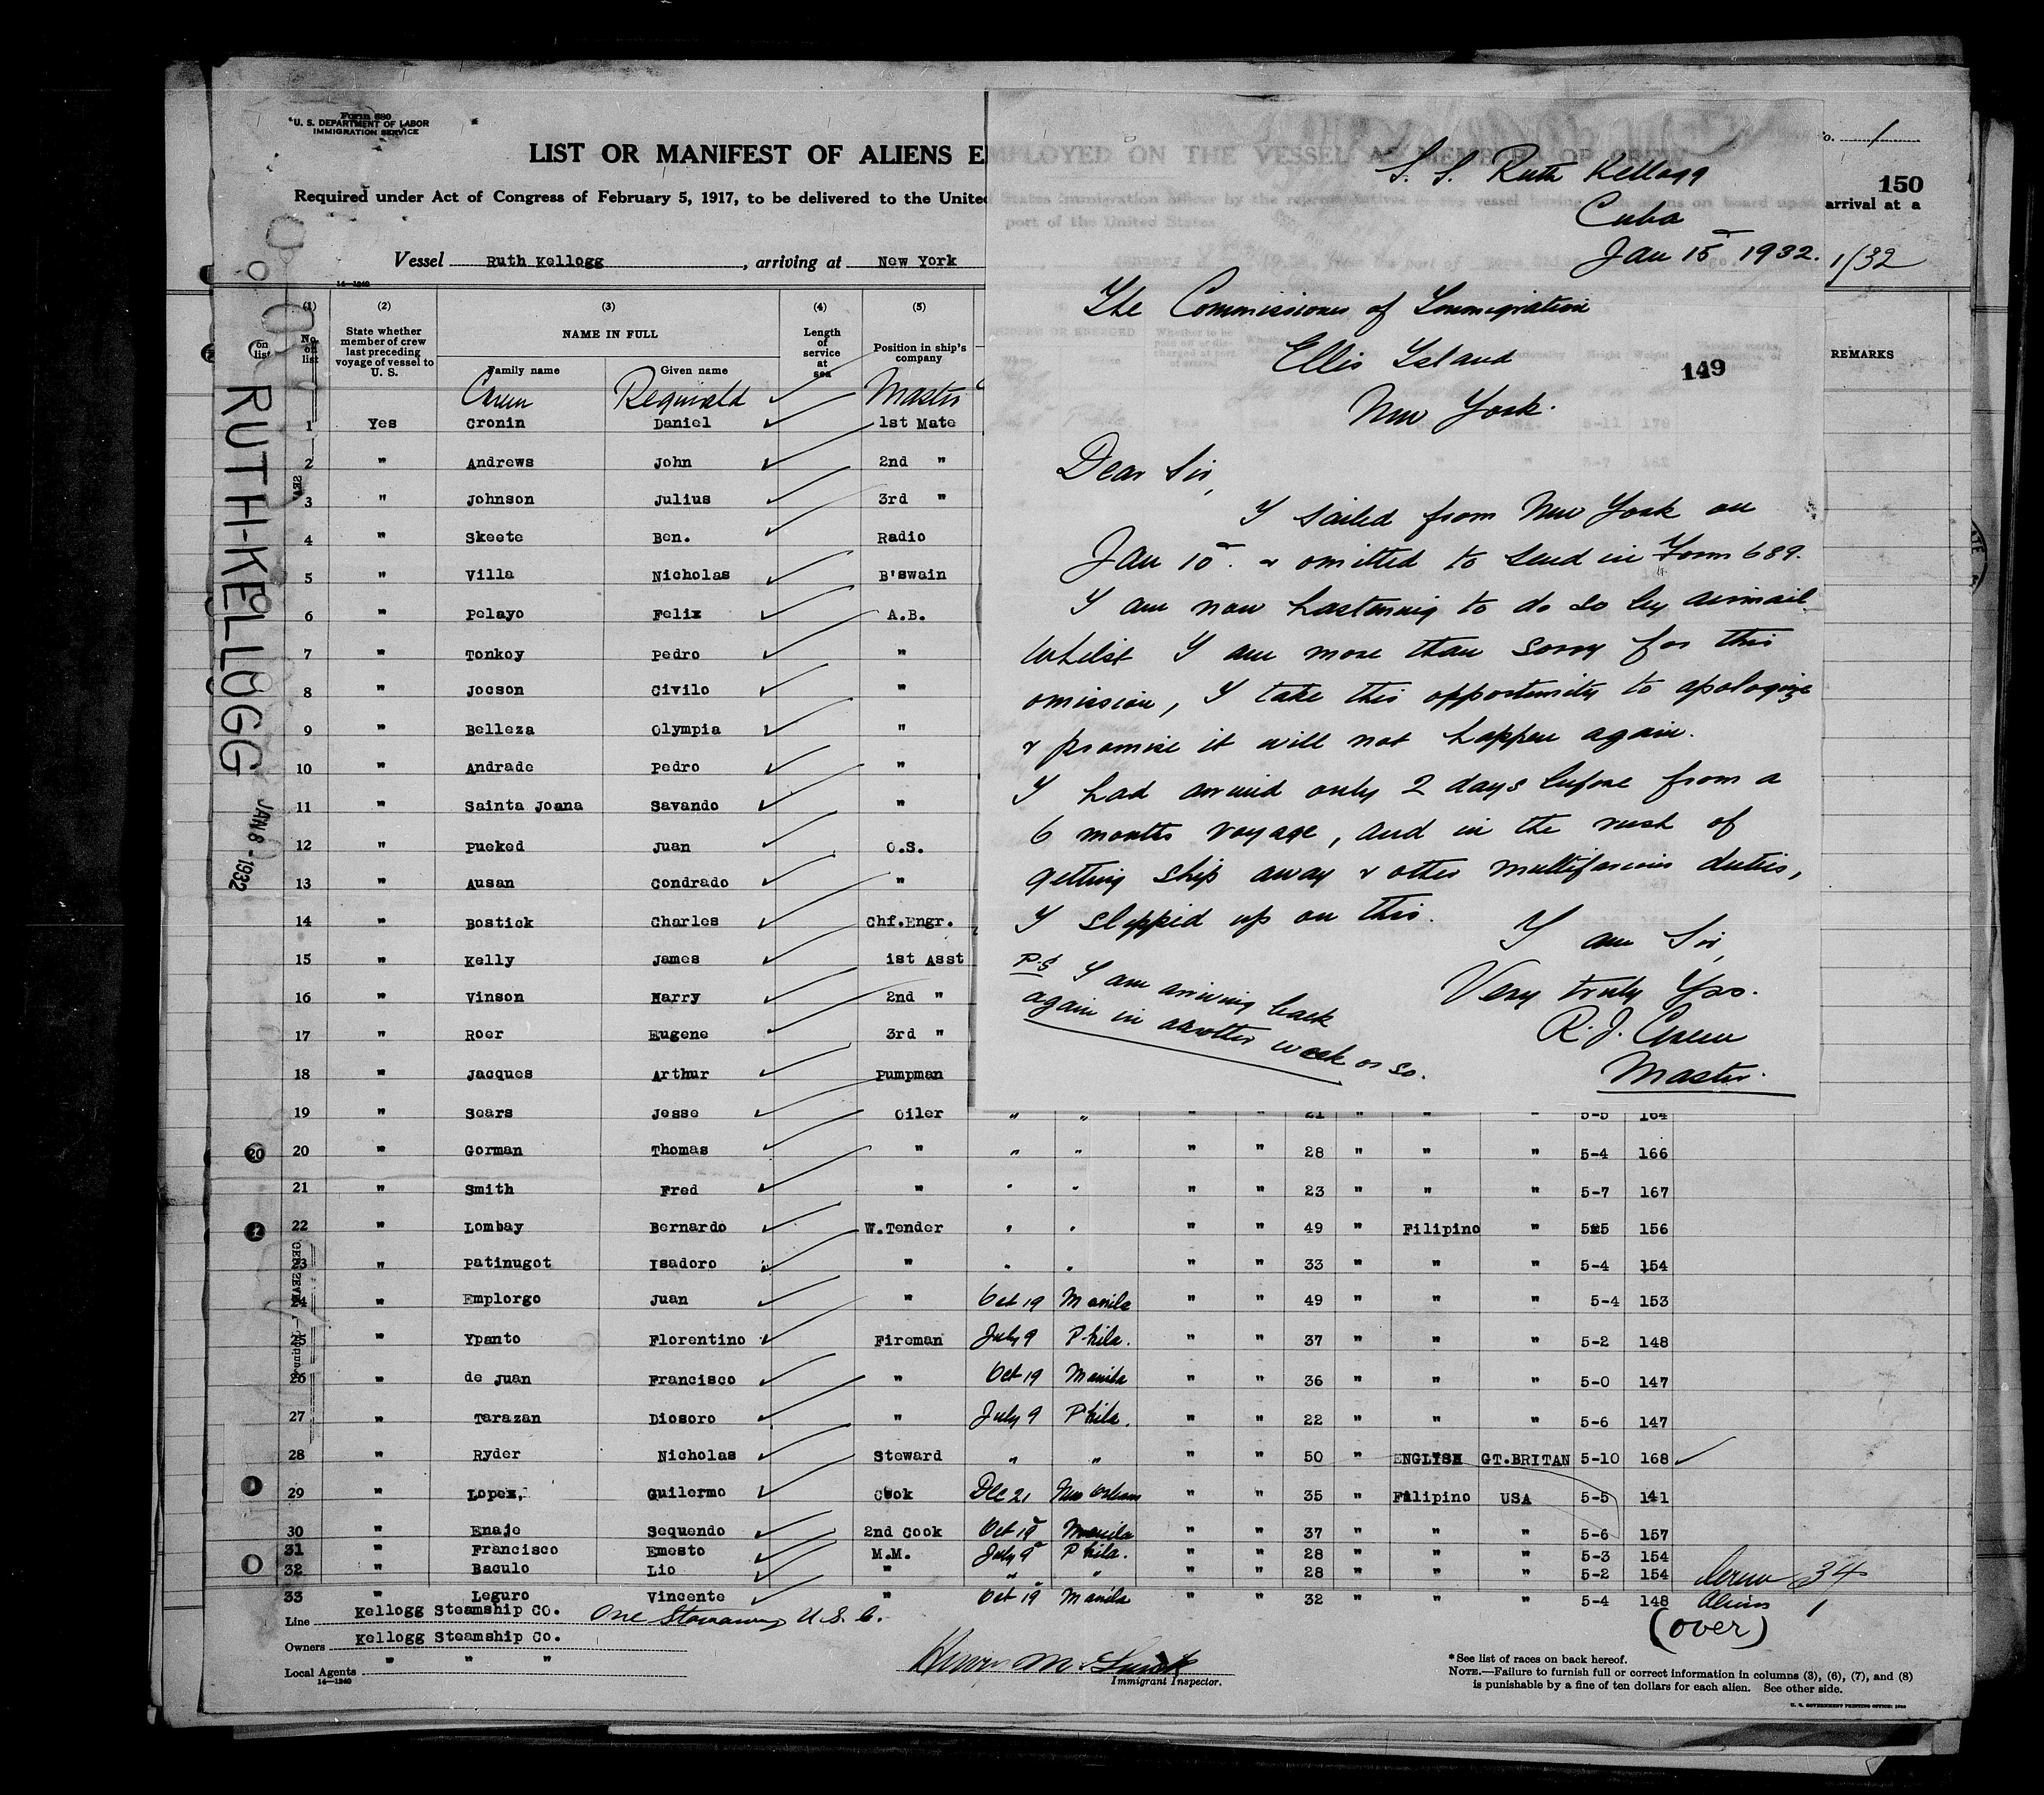 Form 680
U. S. DEPARTMENT OF LABOR
IMMIGRATION SERVICE
LIST OR MANIFEST OF ALIENS EMPLOYED ON THE VESSEL AS MEMBERS OF CREW
Required under Act of Congress of February 5, 1917, to be delivered to the United States immigration officer by the representatives of the vessel having such aliens on board upon arrival at a
port of the United States
Vessel Ruth Kellogg , arriving at New York
1/32
1
150
14—1240
(1) (2) (3) (4) (5)
No. on list
State whether member of crew last preceding voyage of vessel to U. S.
NAME IN FULL
Family name Given name
Length of service at sea
Position in ship's company
REMARKS
Green Reginald Master
1 Yes Cronin Daniel 1st Mate
2 " Andrews John 2nd "
3 " Johnson Julius 3rd "
4 " Skeete Ben. Radio
5 " Villa Nicholas B'swain
6 " Pelayo Felix A.B.
7 " Tonkoy Pedro "
8 " Jocson Civilo "
9 " Belleza Olympia "
10 " Andrade Pedro "
11 " Sainta Joana Savando "
12 " Pueked Juan O.S.
13 " Ausan Condrado "
14 " Bostick Charles Chf.Engr.
15 " Kelly James 1st Asst
16 " Vinson Harry 2nd "
17 " Roer Eugene 3rd "
18 " Jacques Arthur Pumpman
19 " Sears Jesse Oiler " " " " 21 " " " 5-5 164
20 " Gorman Thomas " " " " " 28 " " " 5-4 166
21 " Smith Fred " " " " " 23 " " " 5-7 167
22 " Lombay Bernardo W.Tender " " " " 49 " Filipino " 5-5 156
23 " Patinugot Isadoro " " " " " 33 " " " 5-4 154
24 " Emplorgo Juan " Oct 19 Manila " " 49 " " " 5-4 153
25 " Ypanto Florentino Fireman July 9 Phila. " " 37 " " " 5-2 148
26 " de Juan Francisco " Oct 19 Manila " " 36 " " " 5-0 147
27 " Tarazan Diosoro " July 9 Phila. " " 22 " " " 5-6 147
28 " Ryder Nicholas Steward " " " " 50 " ENGLISH GT.BRITAN 5-10 168
29 " Lopez, Guilermo Cook Dec 21 New Orleans " " 35 " Filipino USA 5-5 141
30 " Enaje Sequendo 2nd Cook Oct 19 Manila " " 37 " " " 5-6 157
31 " Francisco Emesto M.M. July 9 Phila. " " 28 " " " 5-3 154
32 " Baculo Lio " " " " " 28 " " " 5-2 154
33 " Leguro Vincente " Oct 19 Manila " " 32 " " " 5-4 148
Crew 34
Aliens 1
(over)
Line Kellogg Steamship CO. One Stowaway U.S.C.
Owners Kellogg Steamship Co.
Local Agents " " "
14—1240
Immigrant Inspector.
* See list of races on back hereof.
NOTE.—Failure to furnish full or correct information in columns (3), (6), (7), and (8)
is punishable by a fine of ten dollars for each alien. See other side.
U. S. GOVERNMENT PRINTING OFFICE: 1928
RUTH-KELLOGG
JAN 8 - 1932
S. S. Ruth Kellogg
Cuba
Jan 15 1932.
The Commissioner of Immigration
Ellis Island
149
New York.
Dear Sir,
I sailed from New York on
Jan 10. & omitted to send in Form 689.
I am now hastening to do so by airmail
Whilst I am more than sorry for this
omission, I take this opportunity to apologize
& promise it will not happen again.
I had arrived only 2 days before from a
6 months voyage, and in the rush of
getting ship away & other multifarious duties,
I slipped up on this.
I am Sir,
Very truly Yrs.
R. J. Green
Master.
P.S I am arriving back
again in another week or so.